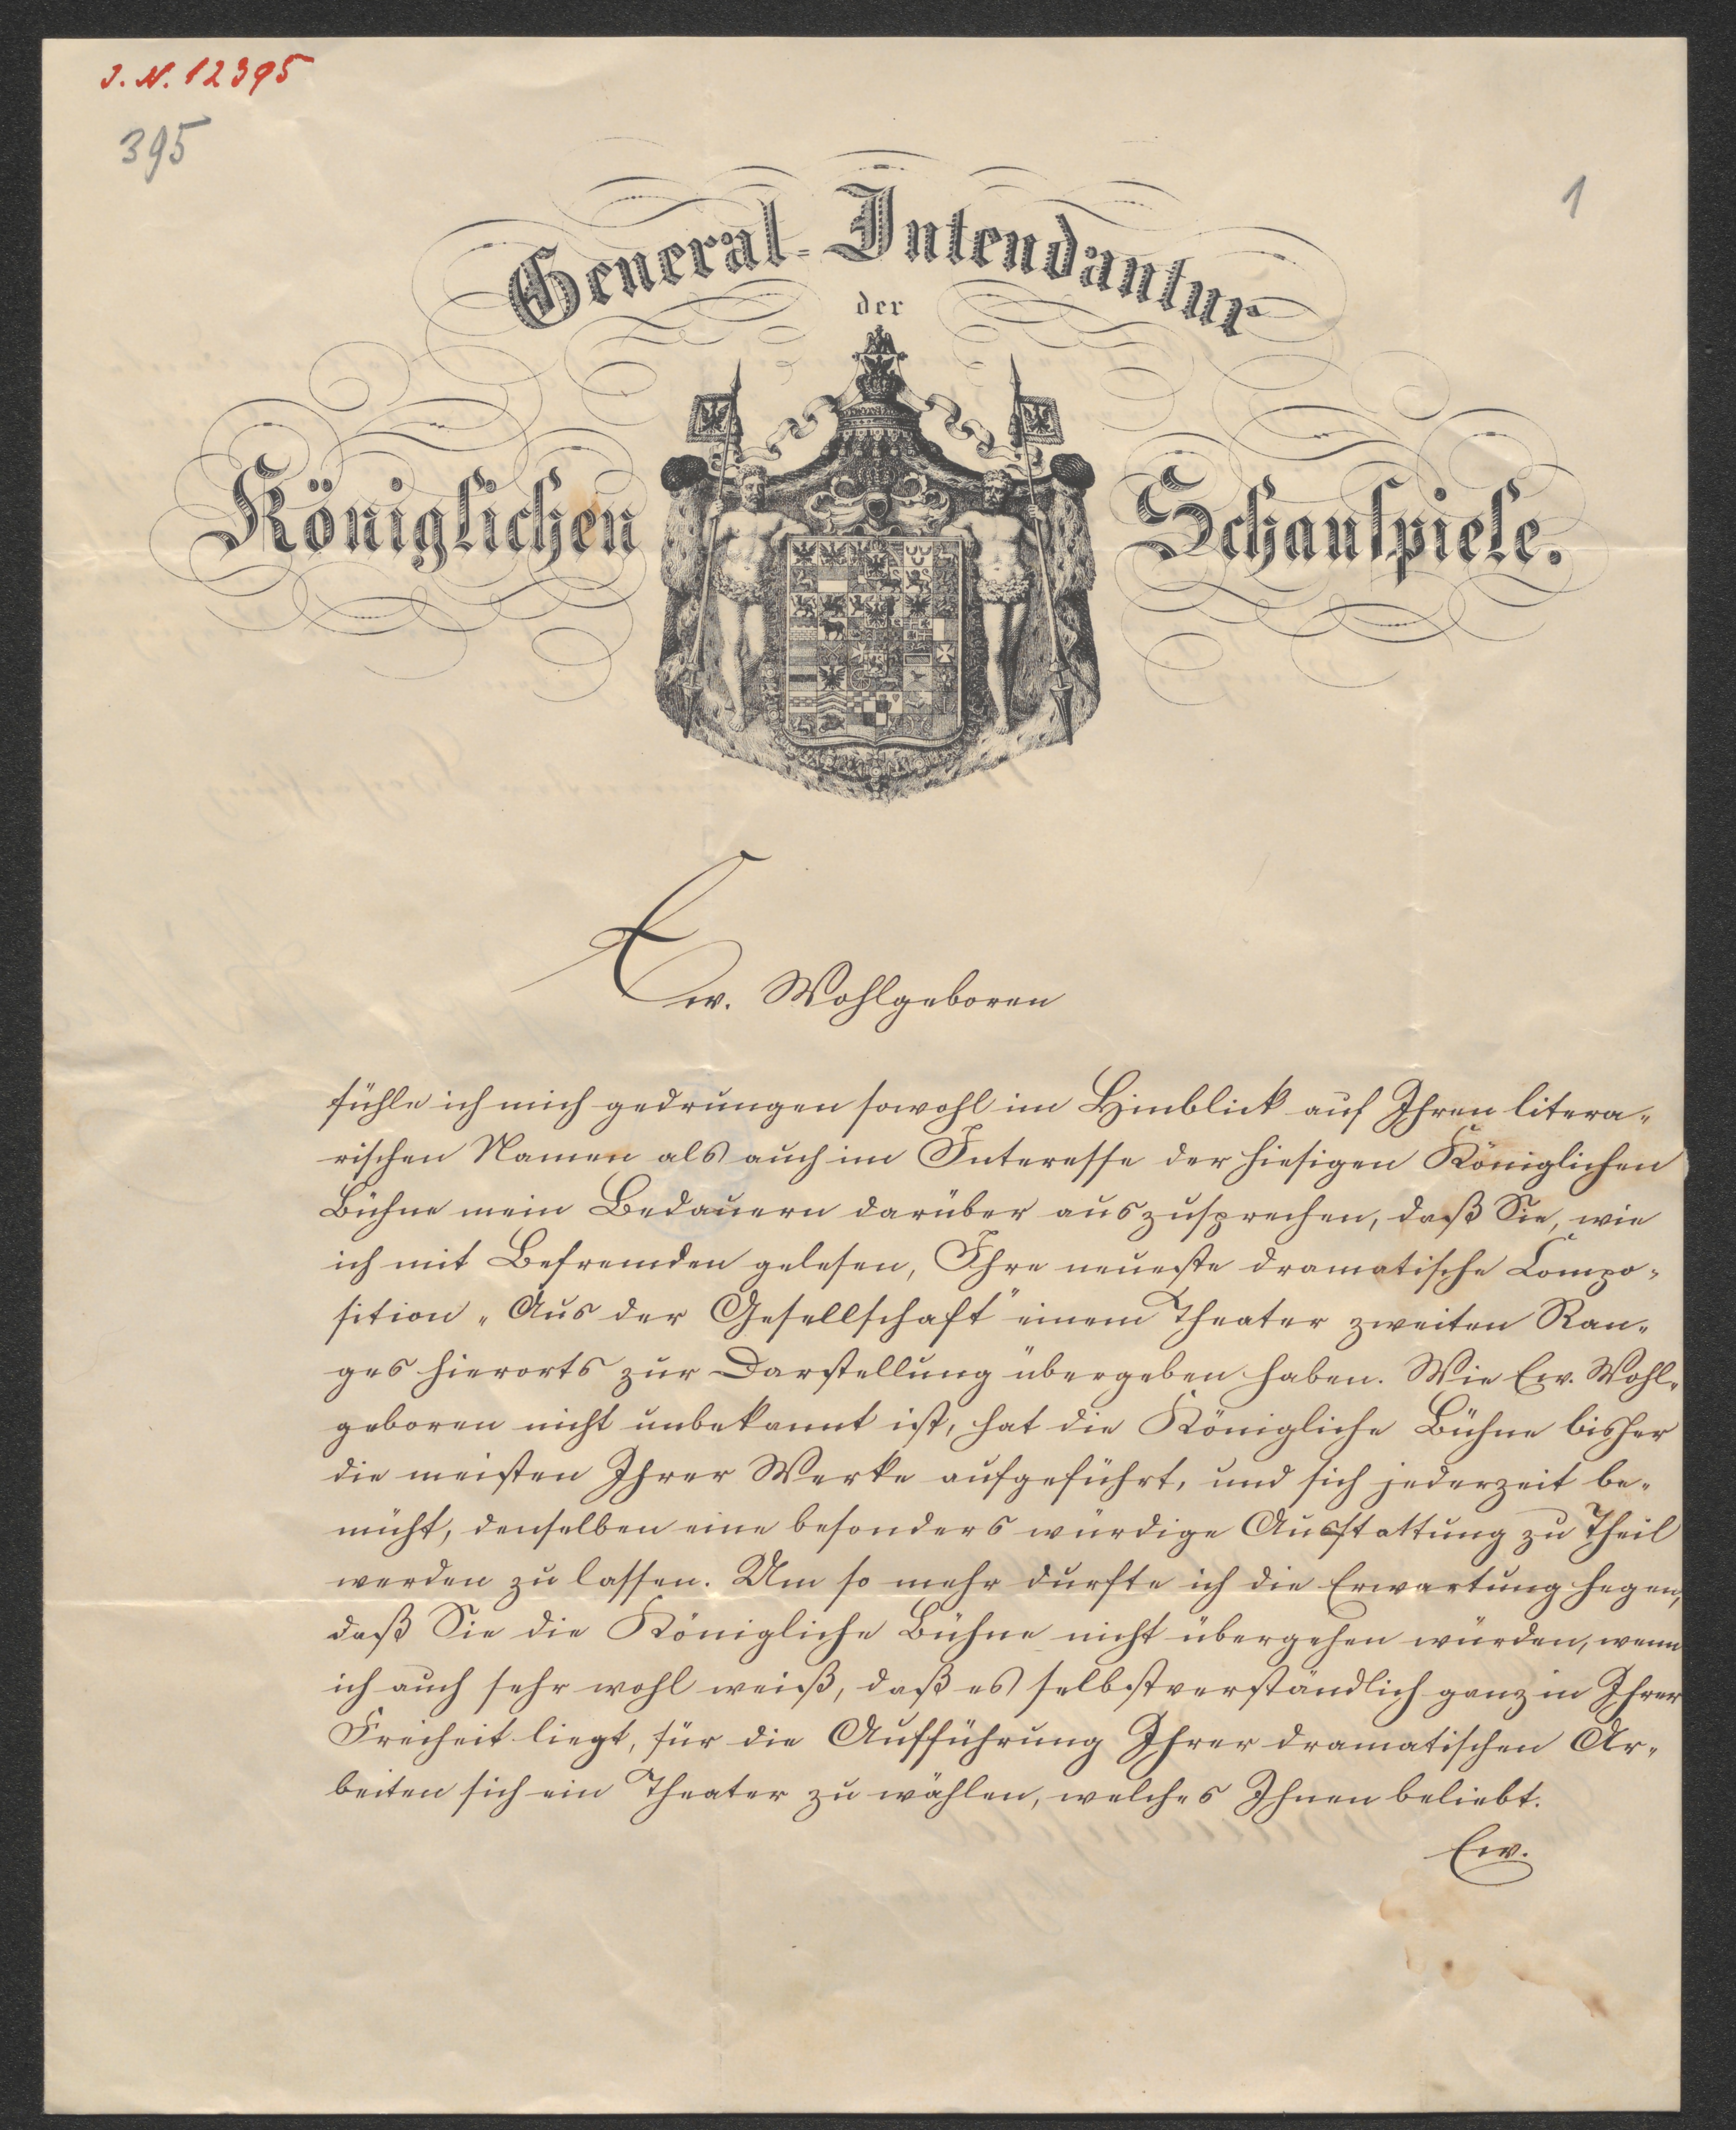 J. N. 12395
395
1
General-Intendantur
der
Königlichen Schauspiele.
Ew. Wohlgeboren
fühle ich mich gedrungen sowohl im Hinblick auf Ihren litera-
rischen Namen als auch im Interesse der hiesigen Königlichen
Bühne mein Bedauern darüber auszusprechen, daß Sie, wie
ich mit Befremden gelesen, Ihre neueste dramatische Compo-
sition „Aus der Gesellschaft" einem Theater zweiten Ran-
ges hierorts zur Darstellung übergeben haben. Wie Ew. Wohl-
geboren nicht unbekannt ist, hat die Königliche Bühne bisher
die meisten Ihrer Werke aufgeführt, und sich jederzeit be-
müht, denselben eine besonders würdige Ausstattung zu Theil
werden zu lassen. Um so mehr durfte ich die Erwartung hegen,
daß Sie die Königliche Bühne nicht übergehen würden, wenn
ich auch sehr wohl weiß, daß es selbstverständlich ganz in Ihrer
Freiheit liegt, für die Aufführung Ihrer dramatischen Ar-
beiten sich ein Theater zu wählen, welches Ihnen beliebt.
Ew.